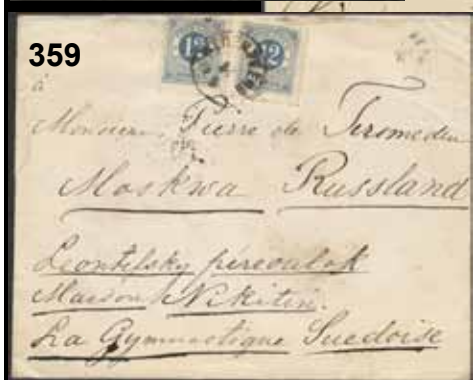 359
12 12
à
Monsieur Pierre de Tersmeden
Moskwa Russland
Leontifsky péreoulok
Maison Nikitin.
La Gymnastique Suedoise